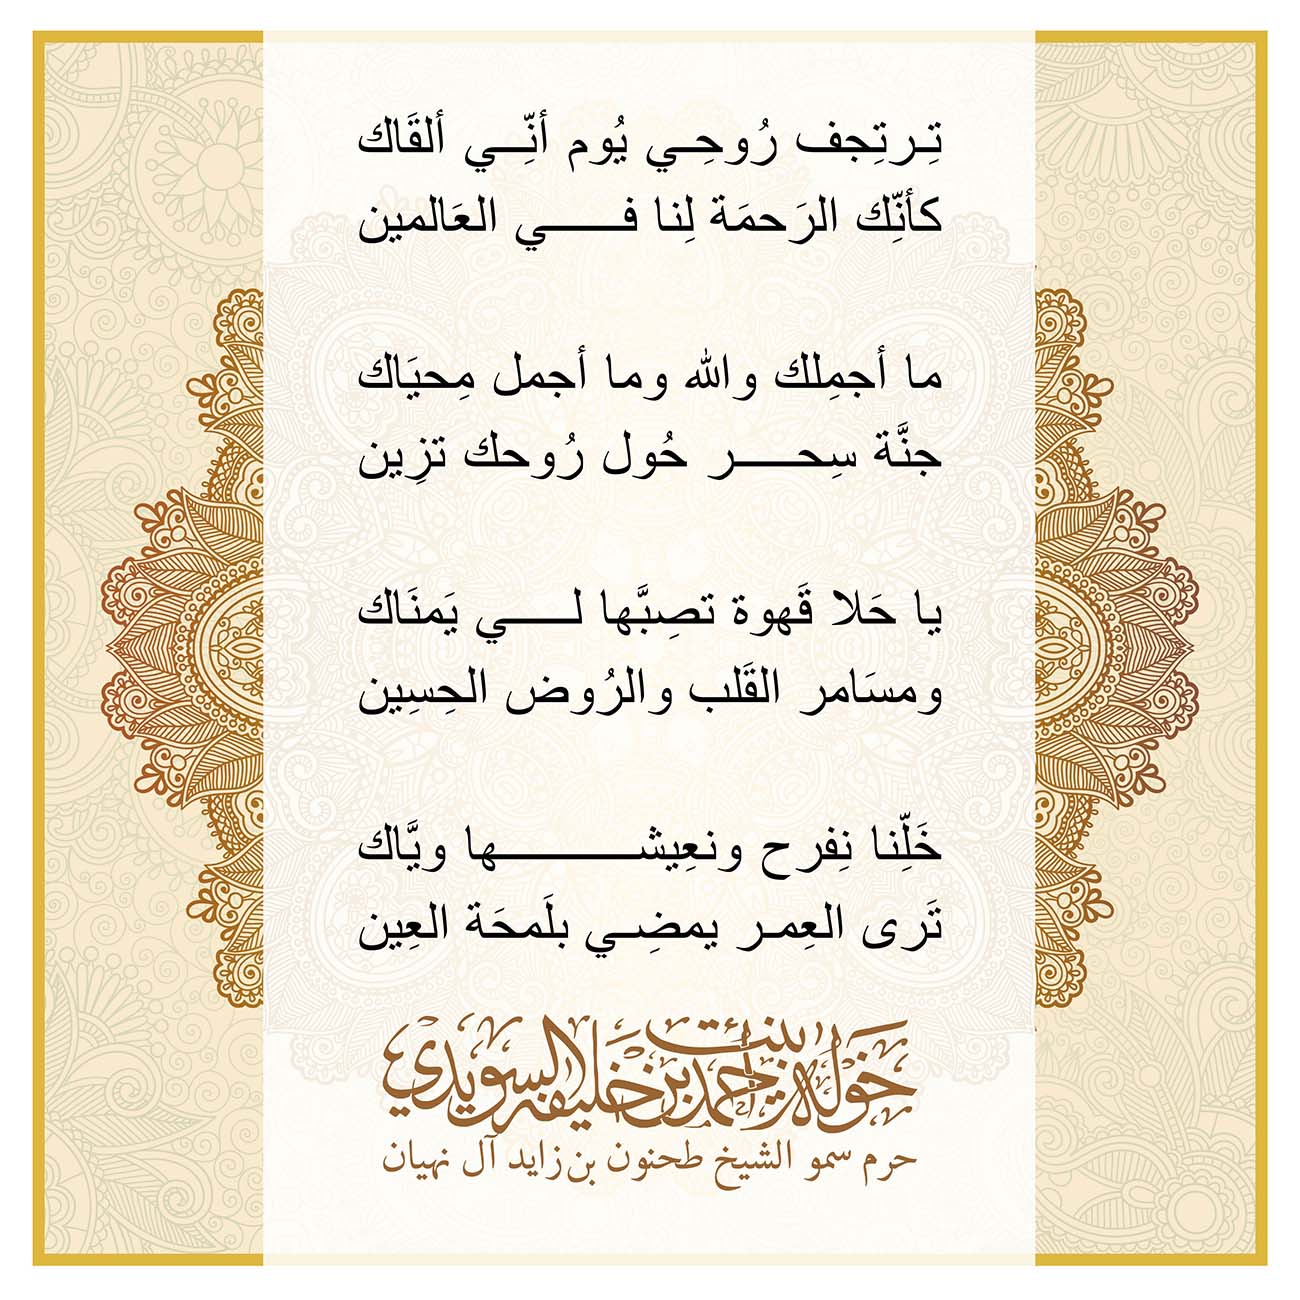 تِرتِجف رُوحِي يُوم أنِّي ألقَاك
كأنِّك الرَحمَة لِنا في العَالمين
ما أجمِلك والله وما أجمل مِحيَاك
جنَّة سِحر حُول رُوحك تزِين
يا حَلا قَهوة تصِبَّها لي يَمنَاك
ومسَامر القَلب والرُوض الحِسِين
خَلِّنا نِفرح ونعِيشها ويَّاك
تَرى العِمر يمضِي بلَمحَة العِين
خولة بنت أحمد بن خليفة السويدي
حرم سمو الشيخ طحنون بن زايد آل نهيان